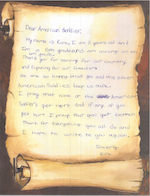 Dear American Soldier,
My name is I am 8 years old and
I'm a 3rd grader
Thank you for saving our our country
and fighting for our freedom.
We are so happy that you and the other
American Soldiers keep us safe.
I pray that none of the American
Soldiers get hurt but if any of you
get hurt I pray that you get better.
Thank for everything you all do and
I hope to write to you again.
Sincerely,